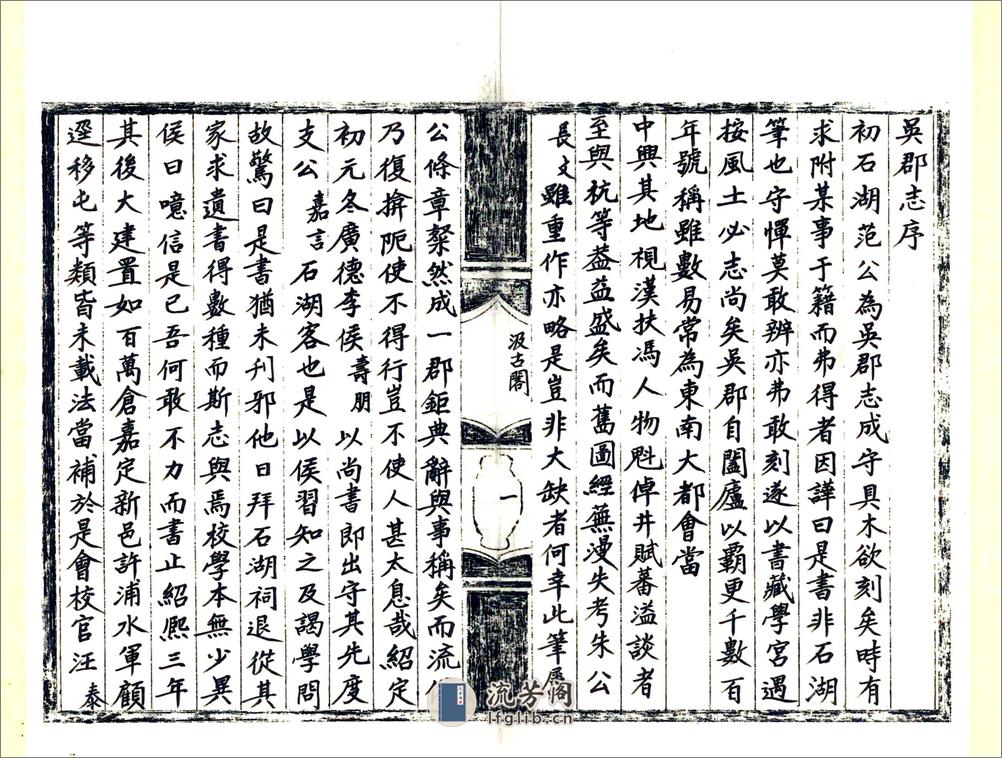 吳郡志序
初石湖范公為吳郡志成守具木欲刻矣時有
求附某事于籍而弗得者因譁曰是書非石湖
筆也守憚莫敢辨亦弗敢刻遂以書藏學宮遇
按風土必志尚矣吳郡自闔廬以霸更千數百
年號稱雖數易常為東南大都會當
中興其地視漢扶馮人物魁倬井賦蕃溢談者
至與杭等葢益盛矣而舊圖經蕪漫失考朱公
長文雖重作亦略是豈非大缺者何幸此筆屬
汲古閣
一
公條章粲然成一郡鉅典辭與事稱矣而流
乃復揜阨使不得行豈不使人甚太息哉紹定
初元冬廣德李侯壽朋以尚書即出守其先度
支公嘉言石湖客也是以侯習知之及謁學問
故驚曰是書猶未刋邪他日拜石湖祠退從其
家求遺書得數種而斯志與焉校學本無少異
侯曰噫信是已吾何敢不力而書止紹熙三年
其後大建置如百萬倉嘉定新邑許浦水軍顧
逕移屯等類皆未載法當補於是會校官汪泰
流芳阁
lfglib.cn